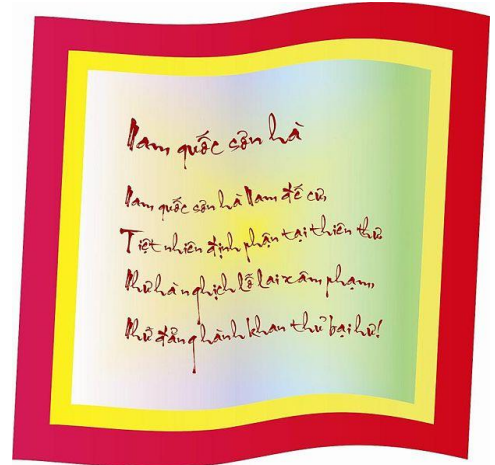 Nam quốc sơn hà
Nam quốc sơn hà Nam đế cư,
Tiệt nhiên định phận tại thiên thư.
Như hà nghịch lỗ lai xâm phạm,
Nhữ đẳng hành khan thủ bại hư!